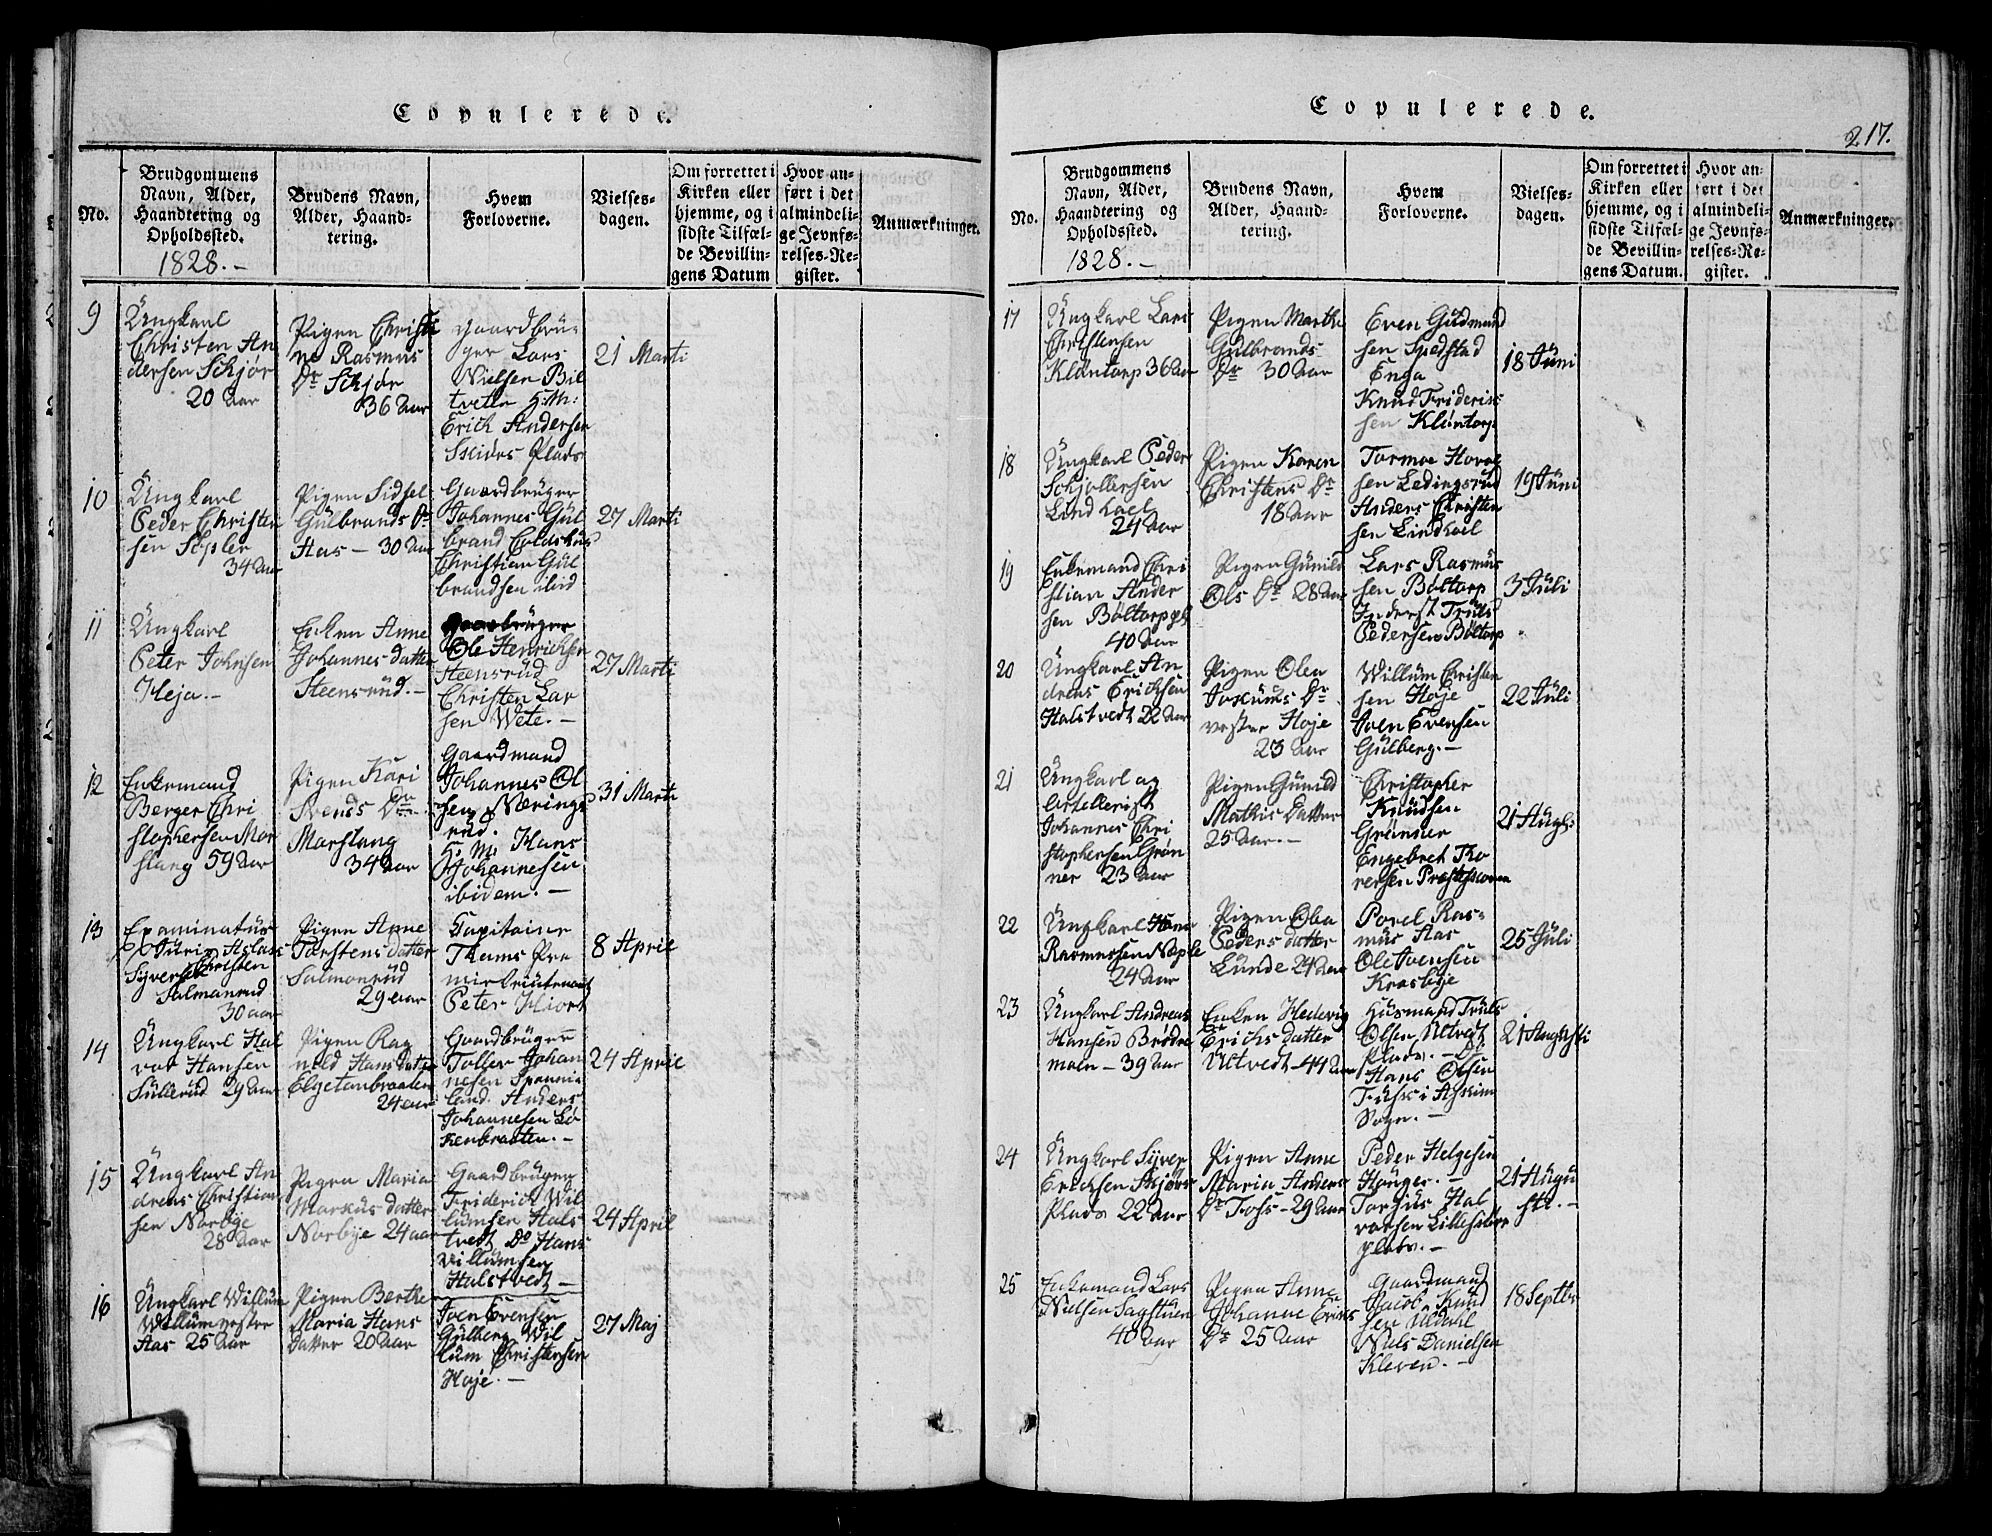 Copulerede.
No.
Brudgommens
Navn, Alder,
Haandtering og
Opholdssted.
1828.-
Brudens Navn,
Alder, Haand-
tering.
Hvem
Forloverne.
Vielses-
dagen.
Om forrettet i
Kirken eller
hjemme, og i
sidste Tilfæl-
de Bevillin-
gens Datum
Hvor an-
ført i det
almindeli-
ge Jevnfø-
relses-Re-
gister.
Anmærkninger.
9
Ungkarl
Christen An
dersen Schjør
20 Aar
Pigen Christi
ne Rasmus
Dr Schjør
36 Aar
Gaardbru-
ger Lars
Nielsen Bil
tvete H: M:
Erick Andersen
Skiørs Plads
21 Marti
10
Ungkarl
Peder Christen
sen
34 Aar
Pigen Sidsel
Gulbrands Dr
Aas - 30 Aar
Gaardbruger
Johannes Gul
brand
Christian Gul
brandsen ibid
27 Marti
11
Ungkarl
Peter Johnsen
Heja.-
Enken Anne
Johannes datter
Steensrud.-
Gaarbruger
Ole Henrichsen
Steensrud
Christen Lar
sen Wete.-
27 Marti
12
Enkemand
Berger Chri
stophersen Mar
slang 59 Aar
Pigen Kari
Svends Dr
Marslang
34 Aar
Gaardmand
Johannes Ol
sen Nærings
rud.
H: M: Hans
Johannesen
ibidem.-
31 Marti
13
Examinatus
Juris Aslas
Syversen Christen
Salmanrud
30 aar
Pigen Anne
Torstens datter
Salmonrud
29 aar
Capitaine
Thams Pre
mierlieutenant
Peter Hiort
8 April
14
Ungkarl Hal
vor Hansen
Sullerud 29 Aar
Pigen Rag
nild Hans datter
Elgetanbraaten
24 aar
Gaardbruger
Toller Johan
nesen Spønni
land. Anders
Johannesen Lø
kenbraaten.-
24 April
15
Ungkarl An
dreas Christian
sen Norbye
28 Aar
Pigen Maria
Markus datter
Norbye 24 aar
Gaardbruger
Friderich Wil
lumsen Hals
tvedt Do Hans
Villumsen
Halstvedt -
24 April
16
Ungkarl Willum
Willum vestre
Aas 25 Aar
Pigen Berthe
Maria Hans
Datter 20 Aar
Joen Evensen
Gulberg Wil
lum Christensen
Høje.-
27 Maj
Copulerede.
217.
No.
Brudgommens
Navn, Alder,
Haandtering og
Opholdssted.
1828.-
Brudens Navn,
Alder, Haand-
tering.
Hvem
Forloverne.
Vielses-
dagen.
Om forrettet i
Kirken eller
hjemme, og i
sidste Tilfæl-
de Bevillin-
gens Datum.
Hvor an-
ført i det
almindeli-
ge Jevnfø-
relses-Re-
gister.
Anmærkninger.
17
Ungkarl Lars
Christensen
Kløntorp 36 Aar
Pigen Marthe
Gulbrands
Dr 30 Aar
Even Gudmund
sen Spedstad
Enga
Knud Friderik
sen Kløntorp
18 Juni
18
Ungkarl Peder
Schjollersen
Lindhoel
24 Aar
Pigen Karen
Christens Dr
18 Aar
Tormoe Hovel
sen Ledingsrud
Anders Christen
sen Lindhoel
19 Juni
19
Enkemand Chri
stian Ander
sen Bøltorp
40 Aar
Pigen Gunild
Ols Dr 28 Aar
Lars Rasmus
sen Bøltorp
Inderst Truls
Pedersen Bøltorp
3 Juli
20
Ungkarl An
dreas Ericksen
Halstvedt 22 Aar
Pigen Olea
Joxums Dr
vestre Høje
23 Aar
Willum Christen
sen Høje
Joen Evensen
Gulberg.-
22 Juli
21
Ungkarl og
Artellerist
Johannes Chri
stophersen Grøn
ner 23 Aar
Pigen Gunild
Mathis Datter
25 Aar.-
Christopher
Knudsen
Grønner
Engebret Tho
rersen
21 Augs:
22
Ungkarl Hans
Rasmussen Næple
24 Aar
Pigen Oba
Peders datter
Lunde 24 Aar
Povel Ras-
mus Aas
Ole Joensen
Krosbye
25 Juli
23
Ungkarl Andreas
Hansen Brødre
moen - 39 Aar
Enken Hedevig
Erichs datter
Utvedt - 44 Aar
Husmand Truls
Olsen Utvedt
Plads.- Do
Hans Olsen
Fusk i Askim
Sogn.-
21 Augusti
24
Ungkarl Syver
Ericksen Skjørs
Plads 22 Aar
Pigen Anne
Maria Anders
Dr Foss - 29 Aar
Peder Helgesen
Hauger.-
Torjus Hal
vorsen Lillesæter
plads.-
21 Augu
sti.-
25
Enkemand Lars
Nielsen Sagstuen
40 Aar
Pigen Anne
Johanne Erics
Dr 25 Aar
Gaardmand
Jacob Knud
sen Uldahl
Niels Danielsen
Kleven.-
18 Septbr